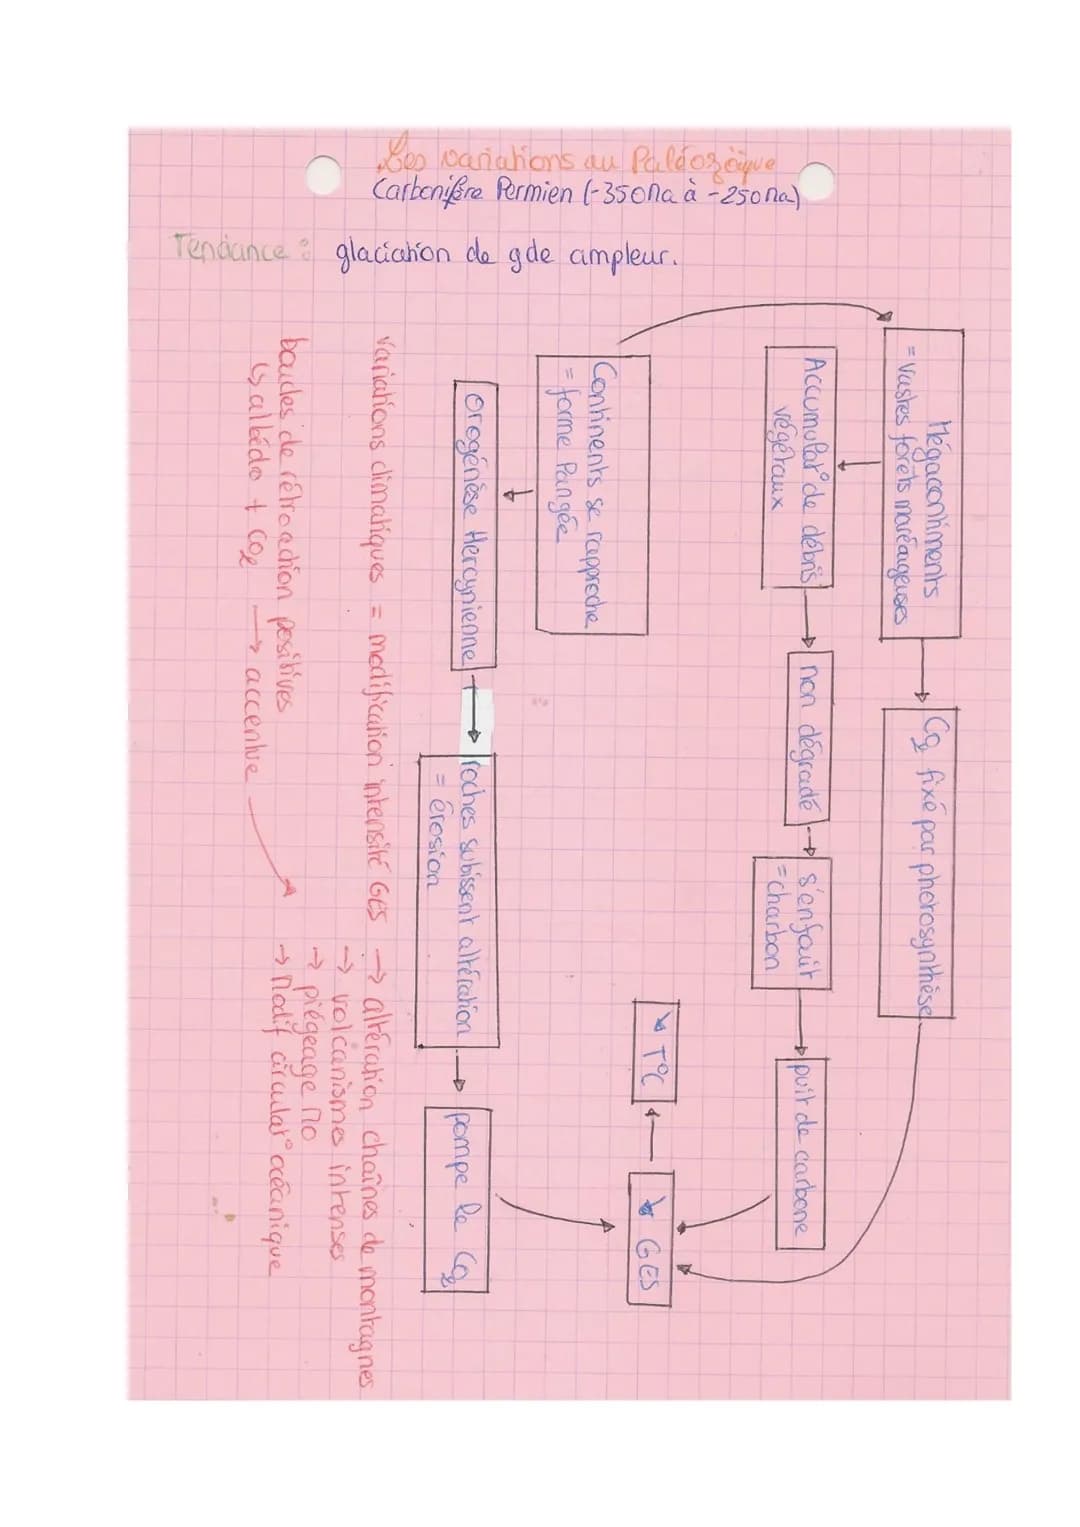 Les variations au Paléozoïque
Carbonifère Permien (-350Ma à -250Ma)
Tendance : glaciation de gde ampleur.
Mégacontinents
= vastes forêts marécageuses
CO2 fixé par photosynthèse
Accumulat° de débris
végétaux
non dégradé
s'enfouit
= charbon
puit de carbone
Continents se rapproche
= forme Pangée
↘ T°C
↘ GES
Orogénèse Hercynienne
roches subissent altération
= érosion
pompe le CO2
variations climatiques = modification intensité GES → altération chaînes de montagnes
→ volcanismes intenses
→ piégeage MO
→ Modif circulat° océanique
boucles de rétroaction positives
↳ albédo + CO2 → accentue